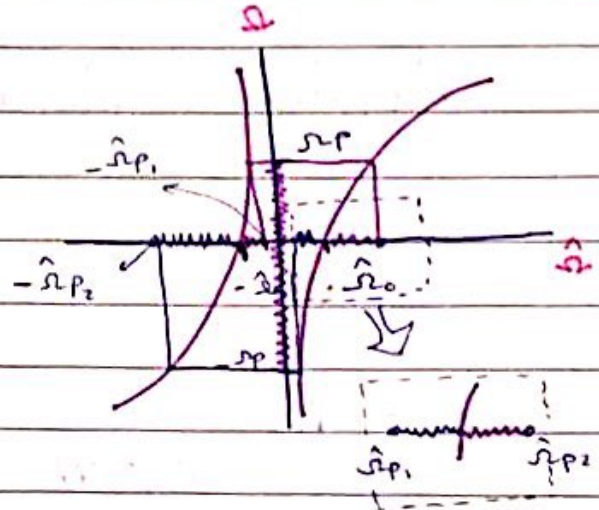 Ω
Ωp
-Ω̂p₁
Ω̂
-Ω̂p₂
-Ω̂₀
Ω̂₀
-Ωp
Ω̂p₁
Ω̂p₂